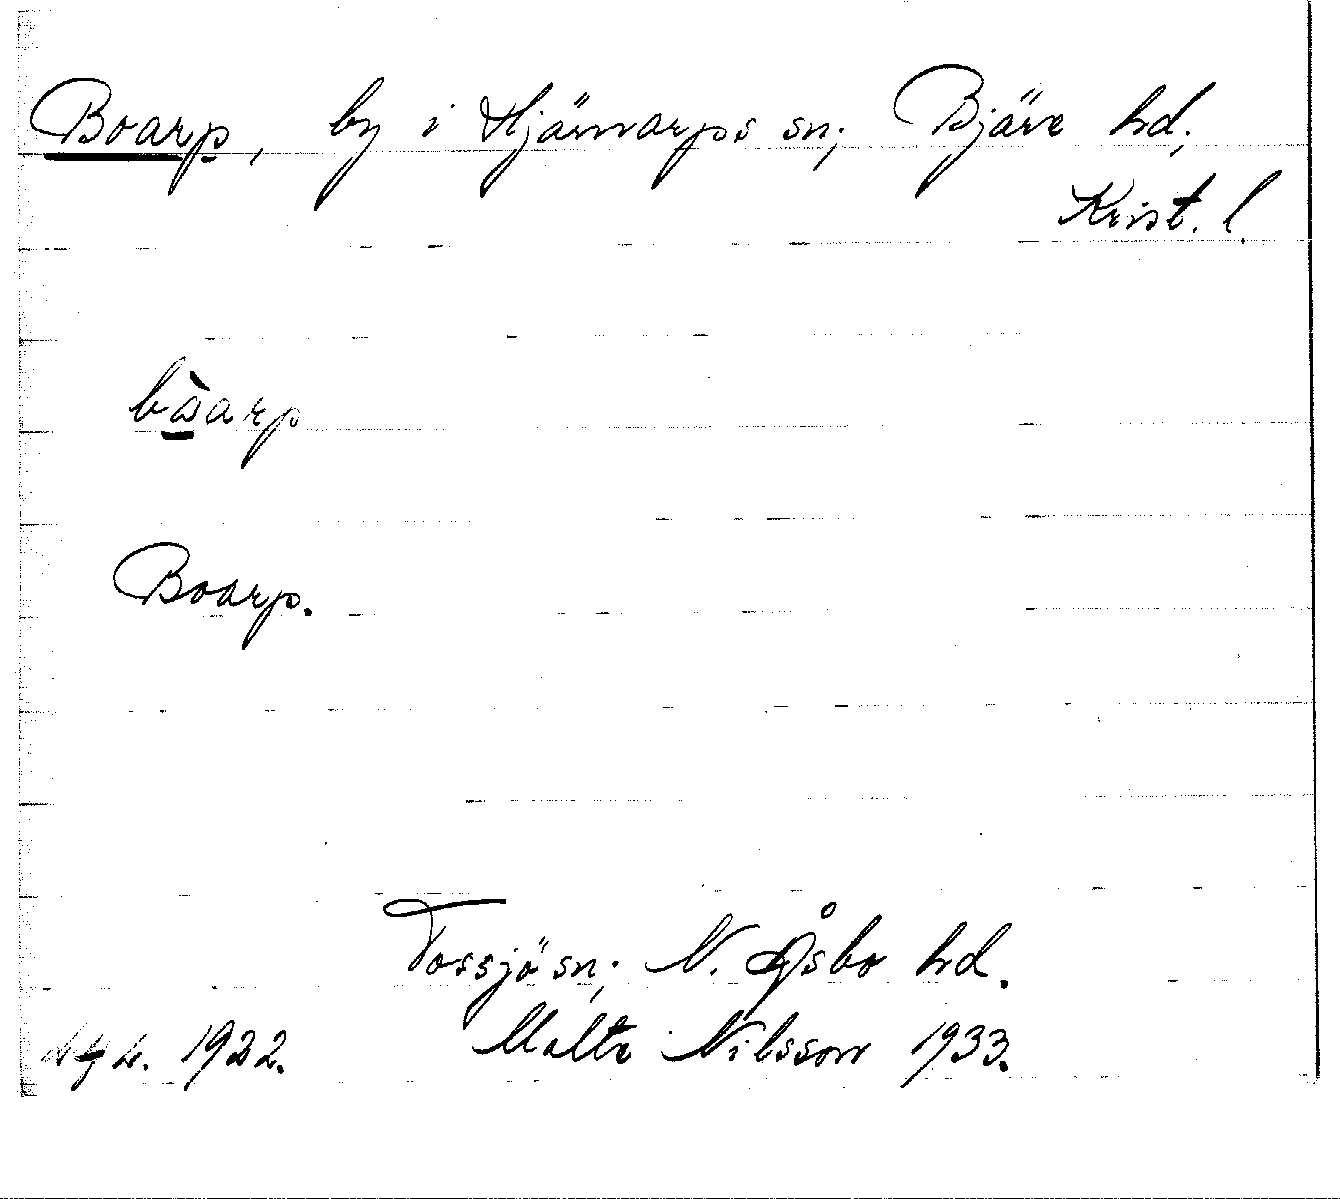 Boarp, by i Hjärnarps sn; Bjäre hd;
Krist. l.
bàarp
Boarp.
Tossjö sn; N. Åsbo hd.
1922. Malte Nilsson 1933.